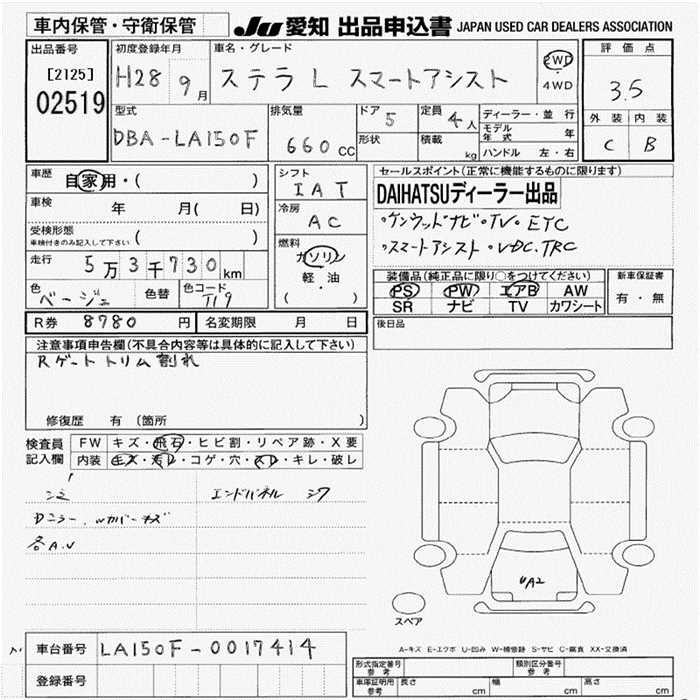 車内保管・守衛保管
JU 愛知 出品申込書 JAPAN USED CAR DEALERS ASSOCIATION
出品番号 初度登録年月 車名・グレード 評価点
[2125] H28 9月 ステラ L スマートアシスト 2WD・4WD 3.5
02519
型式 排気量 ドア 5 定員 4人 ディーラー・並行 外装 内装
DBA-LA150F 660cc 形状 積載 kg モデル年式 年 C B
ハンドル 左・右
車歴 自家用・( ) シフト セールスポイント(正常に機能するものに限ります)
IAT DAIHATSUディーラー出品
車検 年 月( 日) 冷房 ・ケンウッドナビ・TV・ETC
受検形態 AC ・スマートアシスト・VDC.TRC
車検付きのみ記入して下さい ( )
走行 5万3千730km 燃料 ガソリン 軽・油 ( )
装備品(純正品に限り○をつけてください) 新車保証書
PS PW エアB AW 有・無
SR ナビ TV カワシート
色 ベージュ 色替 色コード T19
後日品
R券 8780円 名変期限 月 日
注意事項申告欄(不具合内容等は具体的に記入して下さい)
Rゲートトリム割れ
修復歴 有 (箇所 )
検査員記入欄 FW キズ・飛石・ヒビ割・リペア跡・X要
内装 キズ・汚レ・コゲ・穴・スレ・キレ・破レ
エンドパネル シワ
各A.U
UA2
スペア
A-キズ E-エクボ U-凹み W-補修跡 S-サビ C-腐食 XX-交換済
車台番号 LA150F-0017414
登録番号
形式指定番号 参考 類別区分番号 参考
車庫証明用 参考 長さ cm 幅 cm 高さ cm